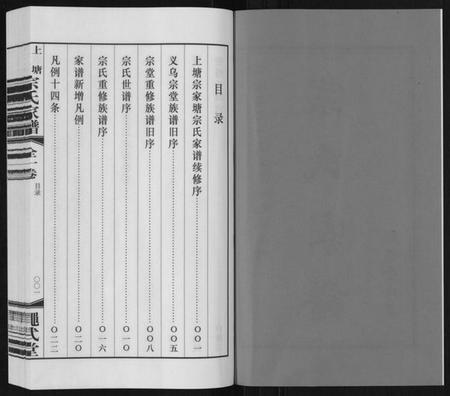 目录
上塘宗家塘宗氏家谱续修序……〇〇一
义乌宗堂族谱旧序……〇〇五
宗堂重修族谱旧序……〇〇八
宗氏世谱序……〇一〇
宗氏重修族谱序……〇一六
家谱新增凡例……〇二〇
凡例十四条……〇二二
上塘宗氏家谱 全一卷 目录 〇〇一 绳武堂